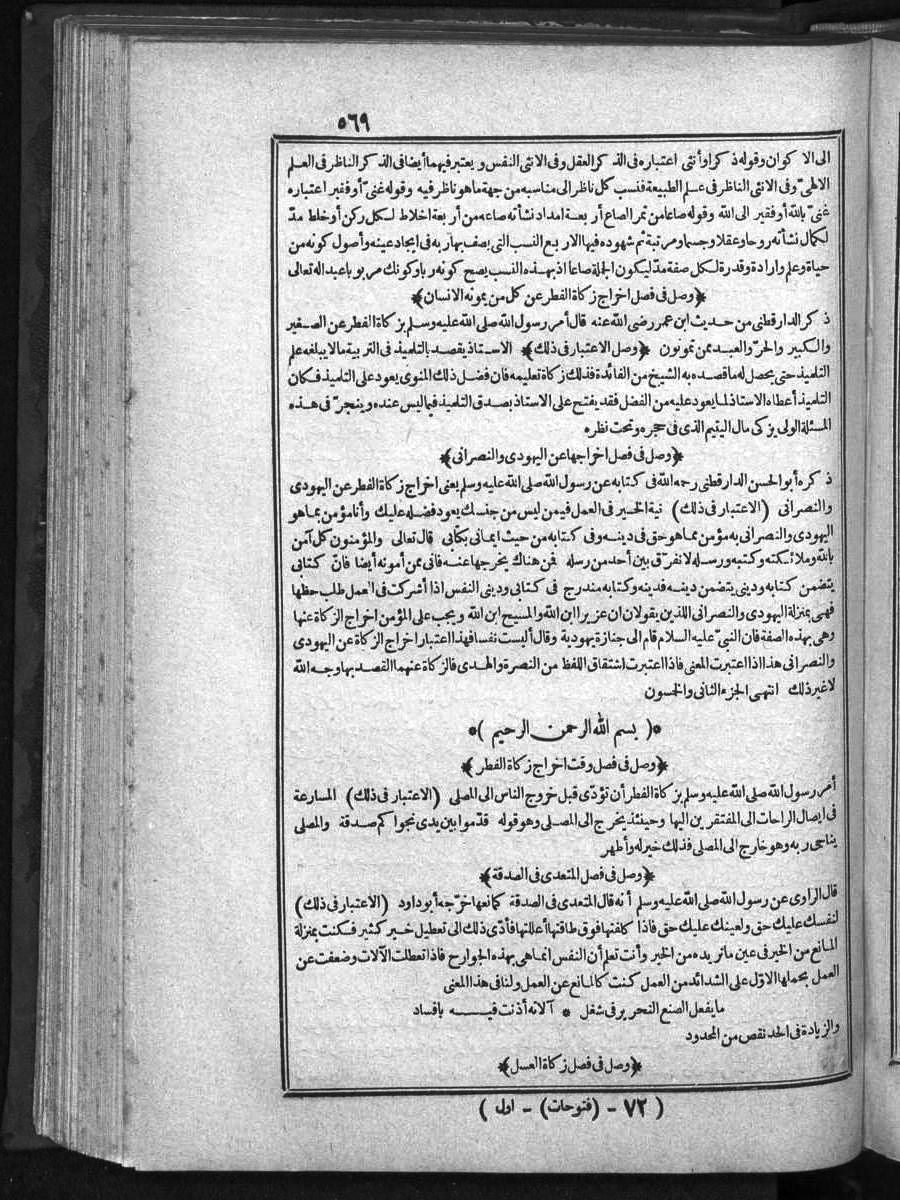 ٥٦٩
الى الاكوان وقوله ذكر أو أنثى اعتباره فى الذكر العقل وفى الانثى النفس ويعتبر فيهما أيضا فى الذكر الناظر فى العلم
الالهىّ وفى الانثى الناظر فى علم الطبيعة فنسب كل ناظر الى مناسبه من جهة ما هو ناظر فيه وقوله غنىّ أو فقير اعتباره
غنىّ بالله أو فقير الى الله وقوله صاعا من تمر الصاع أربعة امداد نشأته صاعه من أربعة اخلاط لكل ركن أو خلط مدّ
لكمال نشأته روحا وعقلا وجسما ومرتبة ثم شهوده فيها الاربع النسب التى يصف بها ربه فى ايجاد عينه وأصول كونه من
حياة وعلم وارادة وقدرة لكل صفة مدّ ليكون الجملة صاعا اذ بهذه النسب يصح كونه ربا وكونك مربوبا عبدا له تعالى
﴿وصل فى فصل اخراج زكاة الفطر عن كل من يمونه الانسان﴾
ذكر الدارقطنى من حديث ابن عمر رضى الله عنه قال أمر رسول الله صلى الله عليه وسلم بزكاة الفطر عن الصغير
والكبير والحرّ والعبد ممن تمونون ﴿وصل الاعتبار فى ذلك﴾ الاستاذ يقصد بالتلميذ فى التربية ما لا يبلغه علم
التلميذ حتى يحصل له ما قصده به الشيخ من الفائدة فذلك زكاة تعليمه فان فضل ذلك المنوى يعود على التلميذ فكان
التلميذ أعطاه الاستاذ لما يعود عليه من الفضل فقد يفتح على الاستاذ بصدق التلميذ فيما ليس عنده وينجرّ فى هذه
المسئلة الولى يزكى مال اليتيم الذى فى حجره وتحت نظره
﴿وصل فى فصل اخراجها عن اليهودى والنصرانى﴾
ذكره أبو الحسن الدارقطنى رحمه الله فى كتابه عن رسول الله صلى الله عليه وسلم يعنى اخراج زكاة الفطر عن اليهودى
والنصرانى (الاعتبار فى ذلك) نية الخير فى العمل فيمن ليس من جنسك يعود فضله عليك وأنا مؤمن بما هو
اليهودى والنصرانى به مؤمن مما هو حق فى دينه وفى كتابه من حيث ايمانى بكتابى قال تعالى والمؤمنون كل آمن
بالله وملائكته وكتبه ورسله لا نفرّق بين أحد من رسله فمن هناك يخرجها عنه فانى ممن أمونه أيضا فانّ كتابى
يتضمن كتابه ودينى يتضمن دينه فدينه وكتابه مندرج فى كتابى ودينى النفس اذا أشركت فى العمل طلب حظها
فهى بمنزلة اليهودى والنصرانى اللذين يقولان ان عزيرا ابن الله والمسيح ابن الله ويجب على المؤمن اخراج الزكاة عنها
وهى بهذه الصفة فان النبىّ عليه السلام قام الى جنازة يهودية وقال أليست نفسا فهذا اعتبار اخراج الزكاة عن اليهودى
والنصرانى هذا اذا اعتبرت المعنى فاذا اعتبرت اشتقاق اللفظ من النصرة والهدى فالزكاة عنهما القصد بها وجه الله
لا غير ذلك انتهى الجزء الثانى والخمسون
*( بسم الله الرحمن الرحيم )*
﴿وصل فى فصل وقت اخراج زكاة الفطر﴾
أمر رسول الله صلى الله عليه وسلم بزكاة الفطر أن تؤدّى قبل خروج الناس الى المصلى (الاعتبار فى ذلك) المسارعة
فى ايصال الراحات الى المفتقرين اليها وحينئذ يخرج الى المصلى وهو قوله قدّموا بين يدى نجواكم صدقة والمصلى
يناجى ربه وهو خارج الى المصلى فذلك خير له وأطهر
﴿وصل فى فصل المتعدى فى الصدقة﴾
قال الراوى عن رسول الله صلى الله عليه وسلم أنه قال المتعدى فى الصدقة كمانعها خرّجه أبو داود (الاعتبار فى ذلك)
لنفسك عليك حق ولعينك عليك حق فاذا كلفتها فوق طاقتها أعللتها فأدّى ذلك الى تعطيل خير كثير فكنت بمنزلة
المانع من الخير فى عين ما تريده من الخير وأنت تعلم أن النفس انما هى بهذه الجوارح فاذا تعطلت الآلات وضعفت عن
العمل بحملها الاوّل على الشدائد من العمل كنت كالمانع عن العمل ولنا فى هذا المعنى
ما يفعل الصنع النحرير فى شغل * آلاته أذنت فيه بافساد
والزيادة فى الحد نقص من المحدود
﴿وصل فى فصل زكاة العسل﴾
( ٧٢ - (فتوحات) - اول )